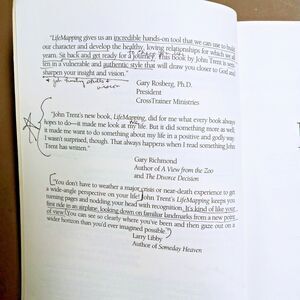 "LifeMapping gives us an incredible hands-on tool that we can use to build
our character and develop the healthy, loving relationships for which we all
yearn. Sit back and get ready for a journey. This book by John Trent is writ-
ten in a vulnerable and authentic style that will draw you closer to God and
sharpen your insight and vision."
Gary Rosberg, Ph.D.
President
CrossTrainer Ministries
"John Trent's new book, LifeMapping, did for me what every book always
hopes to do—it made me look at my life. But it did something more as well:
it made me want to do something about my life in a positive and godly way.
I wasn't surprised, though. That always happens when I read something John
Trent has written."
Gary Richmond
Author of A View from the Zoo
and The Divorce Decision
"You don't have to weather a major crisis or near-death experience to get
a wide-angle perspective on your life! John Trent's LifeMapping keeps you
turning pages and nodding your head with recognition. It's kind of like your
first ride in an airplane, looking down on familiar landmarks from a new point
of view. You can see so clearly where you've been and then gaze out on a
wider horizon than you'd ever imagined possible."
Larry Libby
Author of Someday Heaven